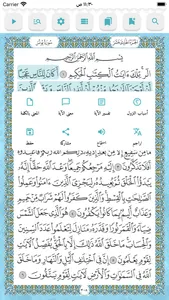 Carrier
١١:٣٠ ص
سورة يونس
بسم الله الرحمن الرحيم
الر تلك ءايت الكتب الحكيم أكان للناس عجبا
أسباب النزول
تفسير الآية
معنى الآية
المعنى بالكلمة
تراجم
استماع
مشاركة
حفظ
ما من شفيع إلا من بعد إذنه ذلكم الله ربكم فاعبدوه
أفلا تذكرون إليه مرجعكم جميعا وعد الله حقا إنه
يبدؤا الخلق ثم يعيده ليجزى الذين ءامنوا وعملوا
الصلحت بالقسط والذين كفروا لهم شراب من حميم
وعذاب أليم بما كانوا يكفرون هو الذى جعل
الشمس ضياء والقمر نورا وقدره منازل لتعلموا عدد
السنين والحساب ما خلق الله ذلك إلا بالحق يفصل
الأيت لقوم يعلمون إن فى اختلف اليل والنهار وما
خلق الله فى السموت والأرض لأيت لقوم يتقون
٢٠٨